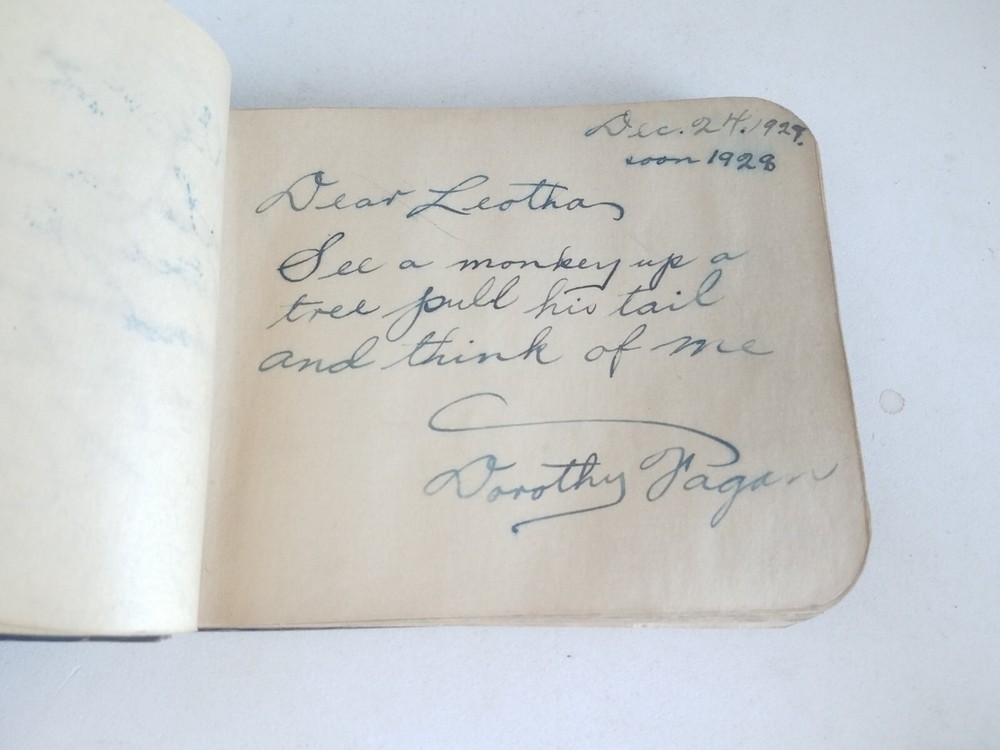 Dec. 24. 1927.
soon 1928
Dear Leotha
See a monkey up a
tree pull his tail
and think of me
Dorothy Fagan